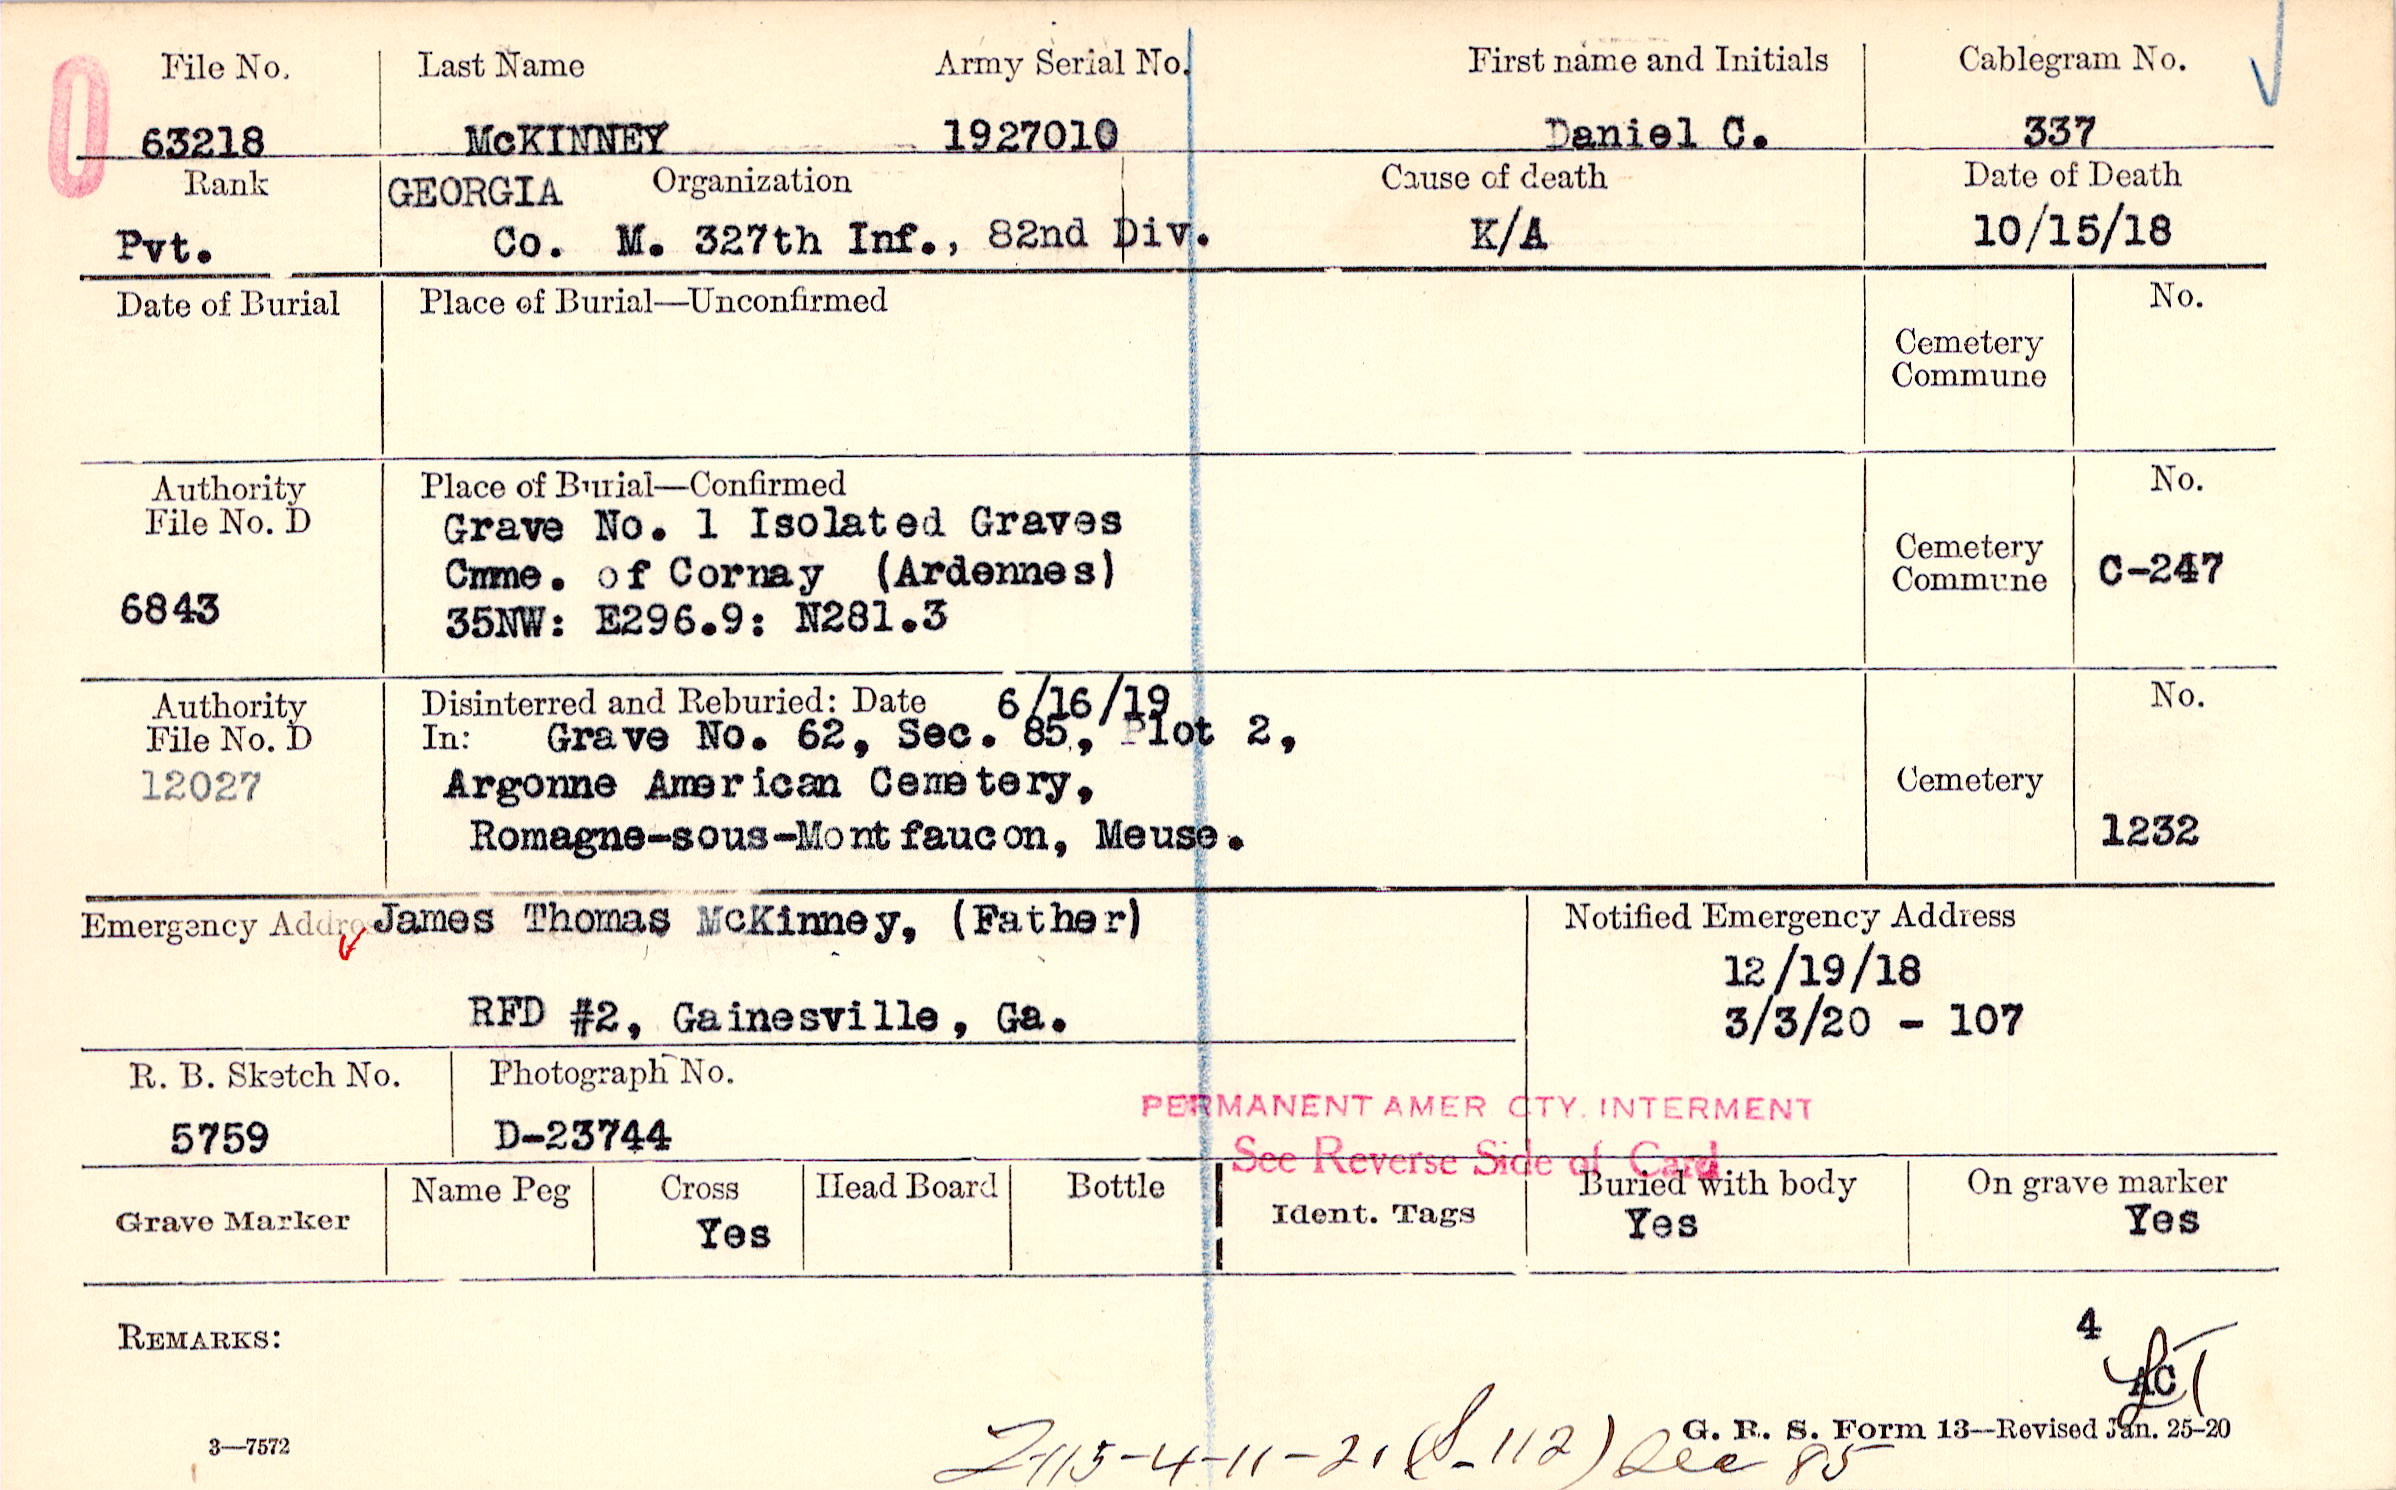 File No. Last Name Army Serial No. First name and Initials Cablegram No.
63218 McKINNEY 1927010 Daniel C. 337
Rank GEORGIA Organization Cause of death Date of Death
Pvt. Co. M. 327th Inf., 82nd Div. K/A 10/15/18
Date of Burial Place of Burial—Unconfirmed No.
Cemetery
Commune
Authority Place of Burial—Confirmed No.
File No. D Grave No. 1 Isolated Graves
Cmme. of Cornay (Ardennes) Cemetery
Commune C-247
6843 35NW: E296.9: N281.3
Authority Disinterred and Reburied: Date 6/16/19 No.
File No. D In: Grave No. 62, Sec. 85, Plot 2,
12027 Argonne American Cemetery, Cemetery
Romagne-sous-Montfaucon, Meuse. 1232
Emergency Addre James Thomas McKinney, (Father) Notified Emergency Address
12/19/18
RFD #2, Gainesville, Ga. 3/3/20 - 107
R. B. Sketch No. Photograph No.
PERMANENT AMER CTY. INTERMENT
5759 D-23744
See Reverse Side of Card
Grave Marker Name Peg Cross Head Board Bottle Ident. Tags Buried with body On grave marker
Yes Yes Yes
REMARKS: 4
AC
3—7572 G. R. S. Form 13—Revised Jan. 25-20
115-4-11-21 (S-112) Sec 85